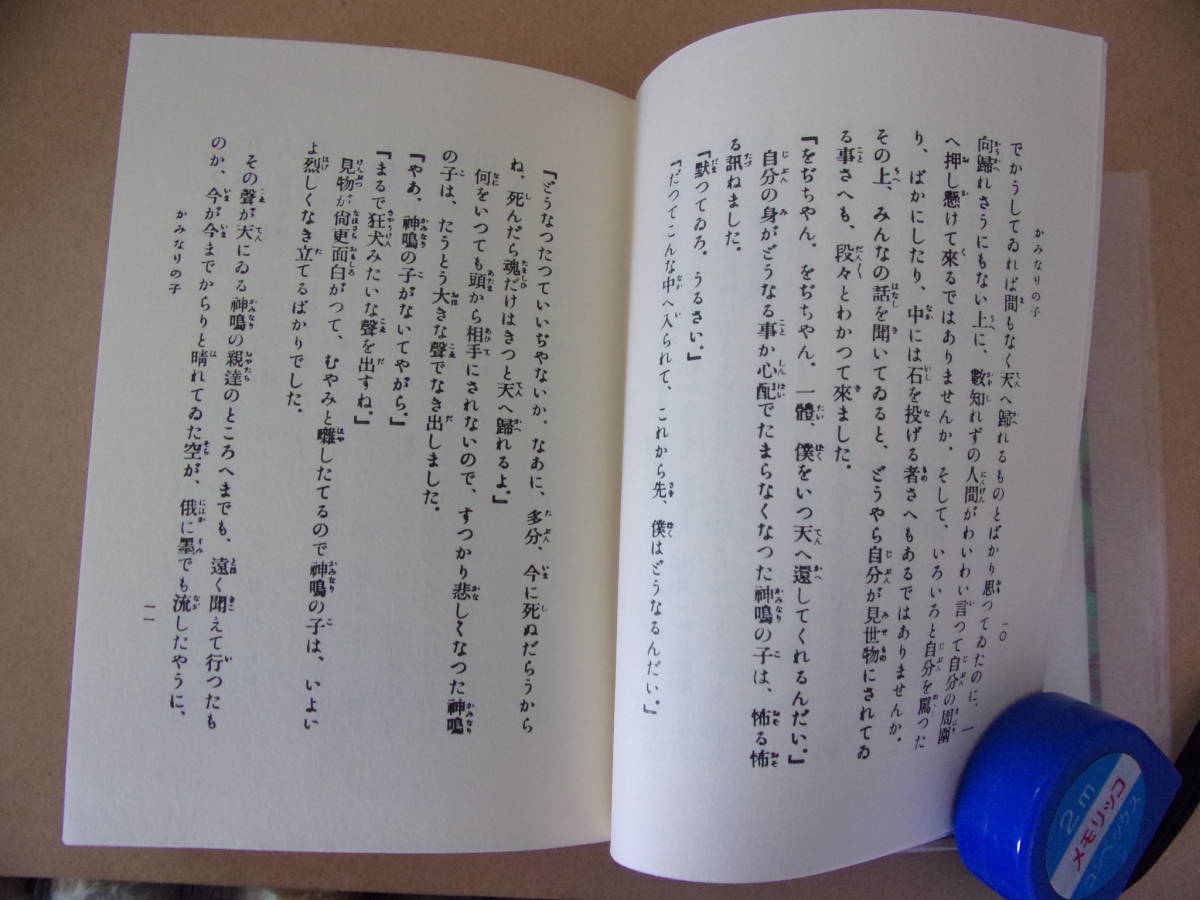 かみなりの子
一〇
でかうしてゐれば間もなく天へ歸れるものとばかり思つてゐたのに、一
向歸れさうにもない上に、數知れずの人間がわいわい言つて自分の周圍
へ押し懸けて來るではありませんか。そして、いろいろと自分を罵つた
り、ばかにしたり、中には石を投げる者さへもあるではありませんか。
その上、みんなの話を聞いてゐると、どうやら自分が見世物にされてゐ
る事さへも、段々とわかつて來ました。
『をぢちやん。をぢちやん。一體、僕をいつ天へ還してくれるんだい。』
自分の身がどうなる事か心配でたまらなくなつた神鳴の子は、怖る怖
る訊ねました。
『默つてゐろ。うるさい。』
『だつてこんな中へ入られて、これから先、僕はどうなるんだい。』
『どうなつたつていいぢやないか。なあに、多分、今に死ぬだらうから
ね。死んだら魂だけはきつと天へ歸れるよ。』
何をいつても頭から相手にされないので、すつかり悲しくなつた神鳴
の子は、たうとう大きな聲でなき出しました。
『やあ、神鳴の子がないてやがら。』
『まるで狂犬みたいな聲を出すね。』
見物が尙更面白がつて、むやみと囃したてるので神鳴の子は、いよい
よ烈しくなき立てるばかりでした。
その聲が天にゐる神鳴の親達のところへまでも、遠く聞えて行つたも
のか、今が今までからりと晴れてゐた空が、俄に墨でも流したやうに、
かみなりの子
一一
2m
メモリッコ
コンベックス